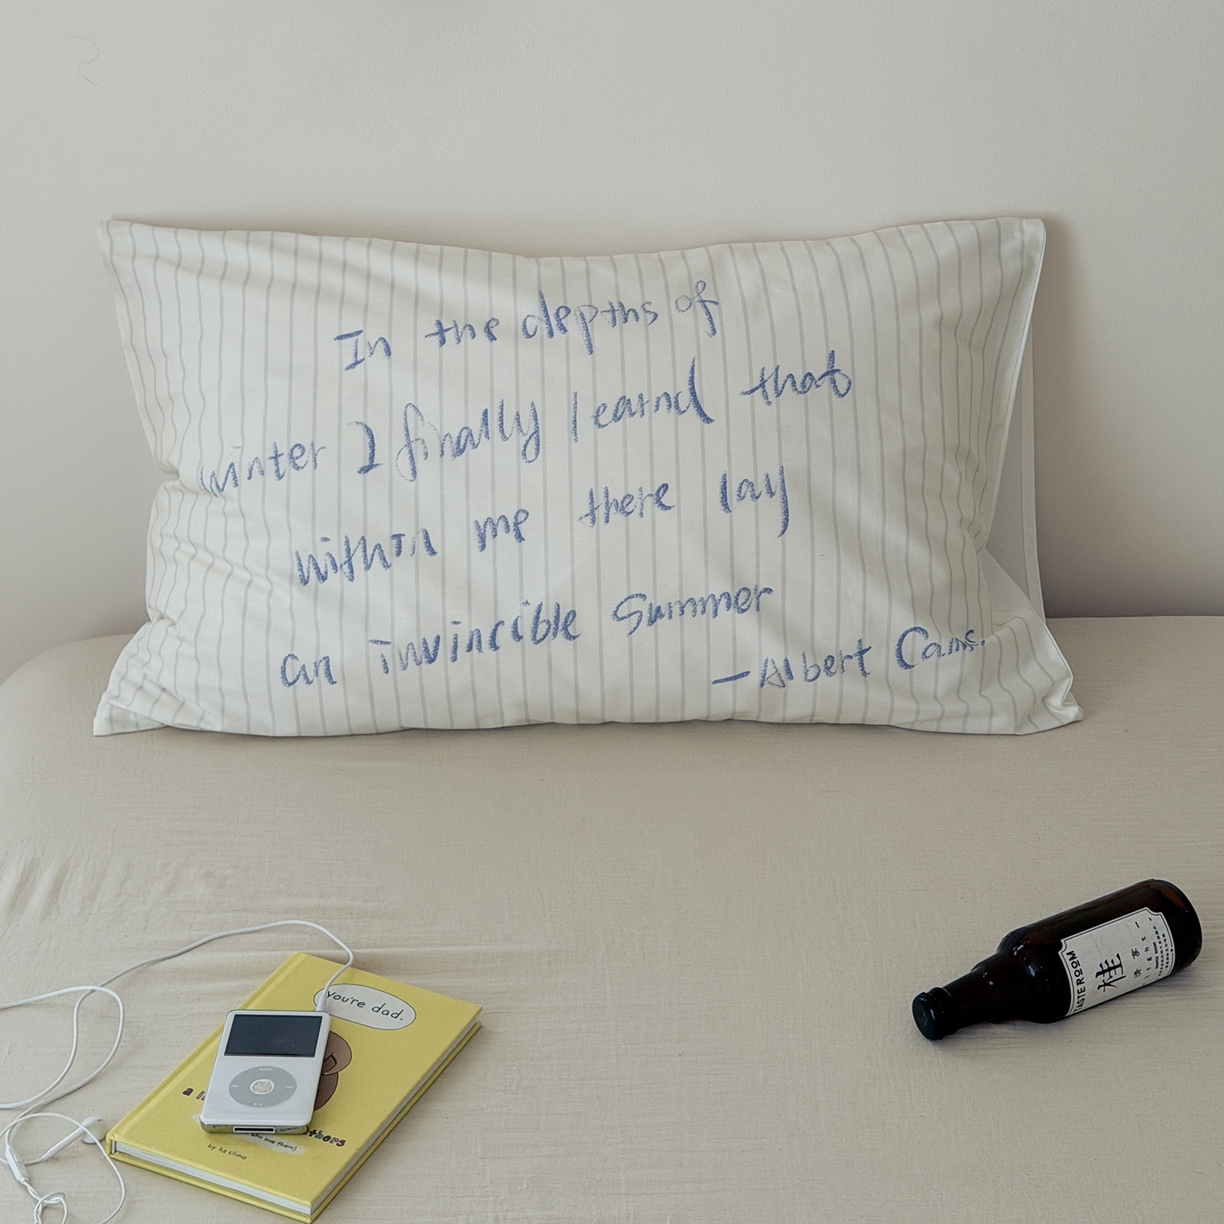 In the depths of
winter I finally learnd that
within me there lay
an invincible Summer
—Albert Cams.
you're dad.
a l
thers
who love them)
by liz climo
TASTE ROOM
桂